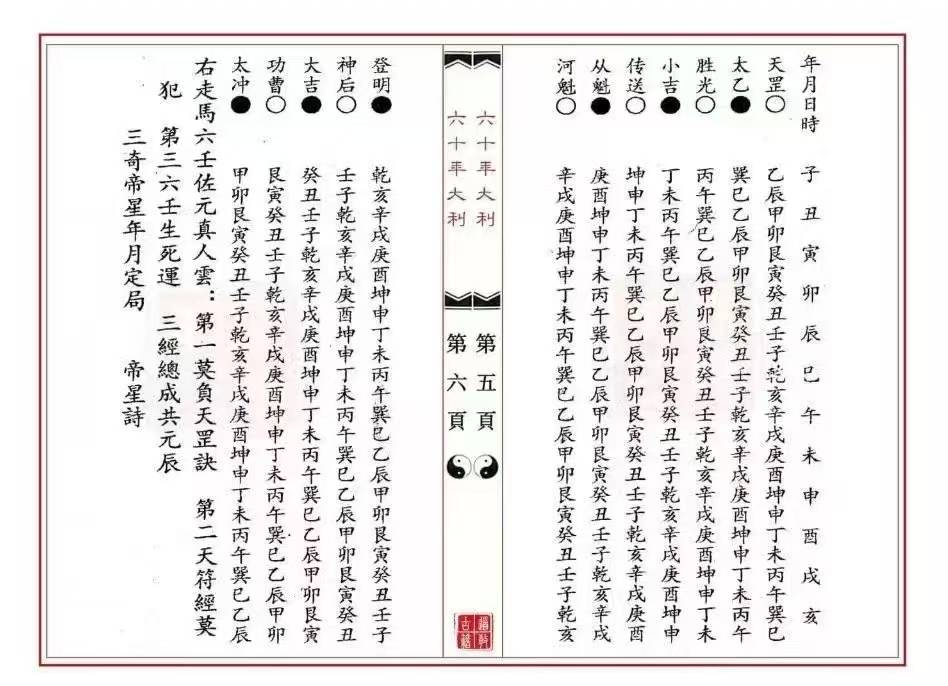 年月日時 子丑寅卯辰巳午未申酉戌亥
天罡○ 乙辰甲卯艮寅癸丑壬子乾亥辛戌庚酉坤申丁未丙午巽巳
太乙● 巽巳乙辰甲卯艮寅癸丑壬子乾亥辛戌庚酉坤申丁未丙午
胜光○ 丙午巽巳乙辰甲卯艮寅癸丑壬子乾亥辛戌庚酉坤申丁未
小吉● 丁未丙午巽巳乙辰甲卯艮寅癸丑壬子乾亥辛戌庚酉坤申
传送○ 坤申丁未丙午巽巳乙辰甲卯艮寅癸丑壬子乾亥辛戌庚酉
从魁● 庚酉坤申丁未丙午巽巳乙辰甲卯艮寅癸丑壬子乾亥辛戌
河魁○ 辛戌庚酉坤申丁未丙午巽巳乙辰甲卯艮寅癸丑壬子乾亥
六十年大利 第五頁
六十年大利 第六頁
古籍
登明● 乾亥辛戌庚酉坤申丁未丙午巽巳乙辰甲卯艮寅癸丑壬子
神后○ 壬子乾亥辛戌庚酉坤申丁未丙午巽巳乙辰甲卯艮寅癸丑
大吉● 癸丑壬子乾亥辛戌庚酉坤申丁未丙午巽巳乙辰甲卯艮寅
功曹○ 艮寅癸丑壬子乾亥辛戌庚酉坤申丁未丙午巽巳乙辰甲卯
太冲● 甲卯艮寅癸丑壬子乾亥辛戌庚酉坤申丁未丙午巽巳乙辰
右走馬六壬佐元真人雲：第一莫負天罡訣 第二天符經莫
犯 第三六壬生死運 三經總成共元辰
三奇帝星年月定局 帝星詩